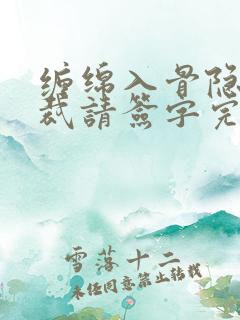 缠绵入骨隐
裁請簽字完
雪落十二
未经同意禁止转载